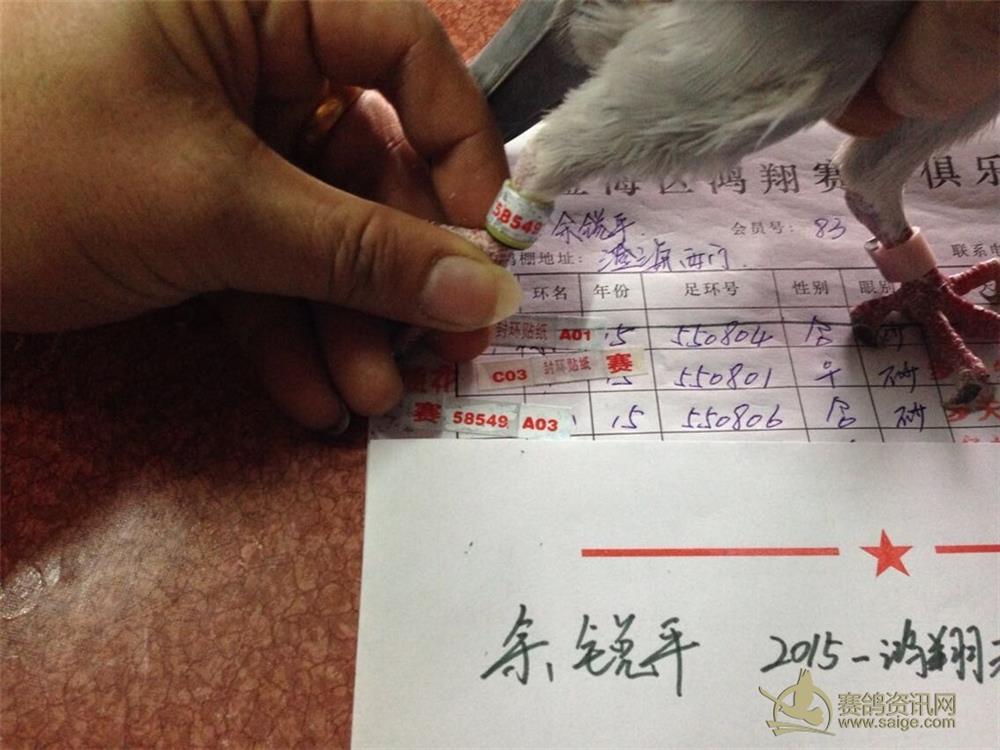 58549
海区鸿翔赛 俱乐
余锐平 会员号: 83
鸽棚地址: 澄海西门 联系电
环名 年份 足环号 性别 眼别
封环贴纸 A01 15 550804
C03 封环贴纸 赛 15 550801
赛 58549 A03 15 550806
余锐平 2015-鸿翔
赛鸽资讯网
www.saige.com